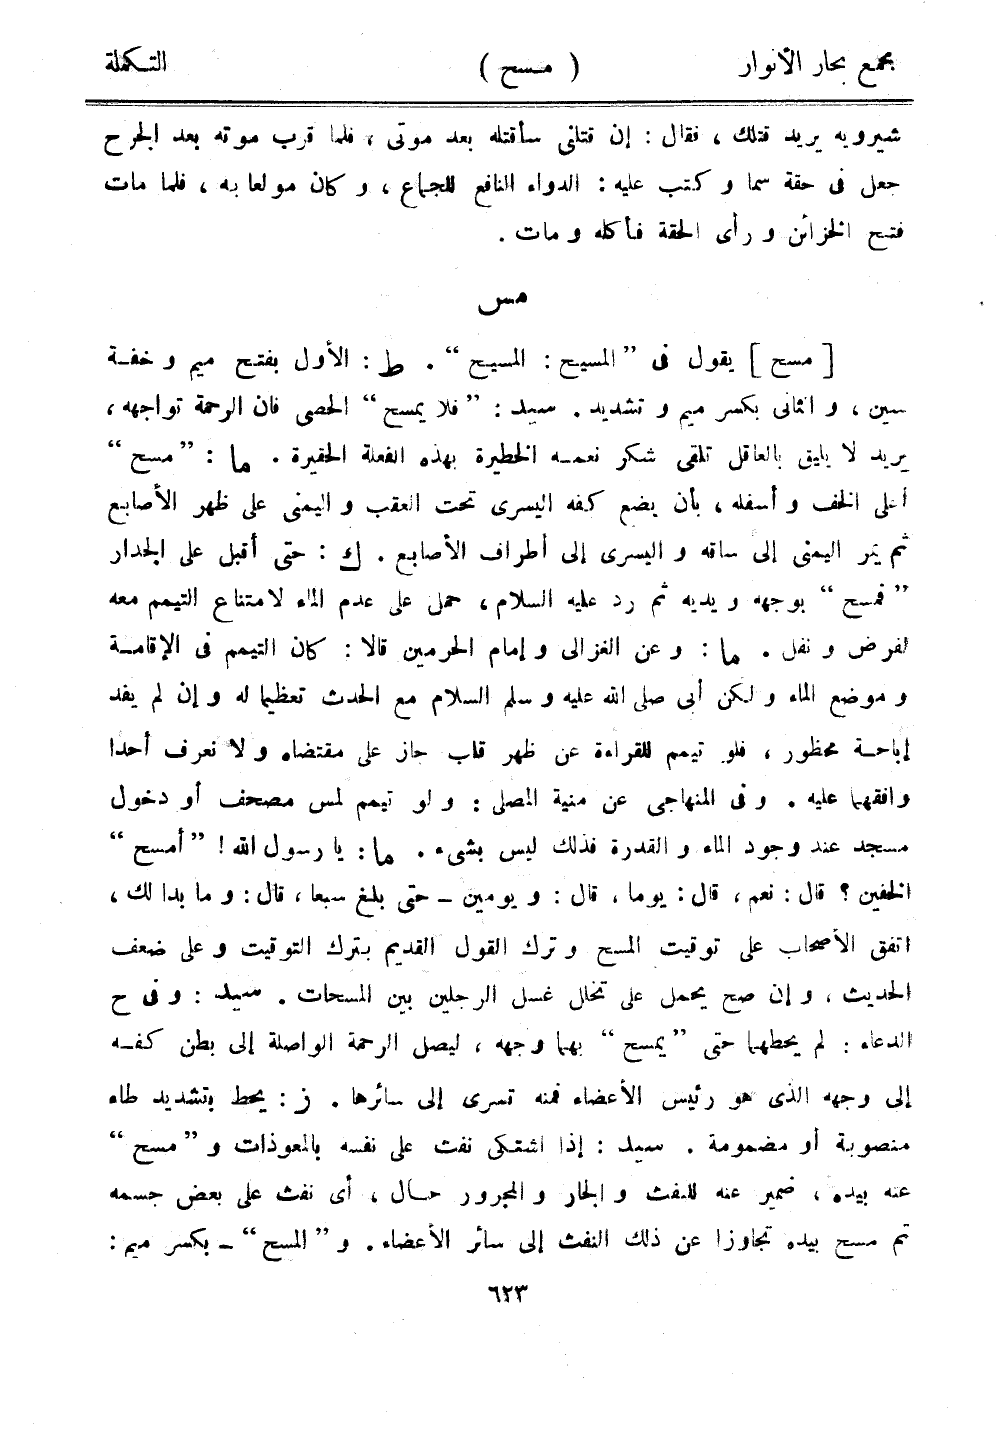 مجمع بحار الأنوار ( مسح ) التكملة
شيرويه يريد قتلك ، فقال : إن قتلنى سأقتله بعد موتى ، فلما قرب موته بعد الجرح
جعل فى حقة سما و كتب عليه : الدواء النافع للجماع ، و كان مولعا به ، فلما مات
فتح الخزائن و رأى الحقة فأكله و مات .
مس
[ مسح ] يقول فى ”المسيح : المسيح“ . ط : الأول بفتح ميم و خفة
سين ، و الثانى بكسر ميم و تشديد . سيد : ”فلا يمسح“ الحصى فان الرحمة تواجهه ،
يريد لا يليق بالعاقل تلقى شكر نعمه الخطيرة بهذه الفعلة الحقيرة . ما : ”مسح“
أعلى الخف و أسفله ، بأن يضع كفه اليسرى تحت العقب و اليمنى على ظهر الأصابع
ثم يمر اليمنى إلى ساقه و اليسرى إلى أطراف الأصابع . ك : حتى أقبل على الجدار
”فمسح“ بوجهه و يديه ثم رد عليه السلام ، حمل على عدم الماء لامتناع التيمم معه
لفرض و نفل . ما : و عن الغزالى و إمام الحرمين قالا : كان التيمم فى الإقامة
و موضع الماء و لكن أبى صلى الله عليه و سلم السلام مع الحدث تعظيما له و إن لم يفد
إباحة محظور ، فلو تيمم للقراءة عن ظهر قلب جاز على مقتضاه و لا نعرف أحدا
وافقهما عليه . و فى المنهاجى عن منية المصلى : و لو تيمم لمس مصحف أو دخول
مسجد عند وجود الماء و القدرة فذلك ليس بشىء . ما : يا رسول الله ! ”أمسح“
الخفين ؟ قال : نعم ، قال : يوما ، قال : و يومين ــ حتى بلغ سبعا ، قال : و ما بدا لك ،
اتفق الأصحاب على توقيت المسح و ترك القول القديم بترك التوقيت و على ضعف
الحديث ، و إن صح يحمل على تخلل غسل الرجلين بين المسحات . سيد : و فى ح
الدعاء : لم يحطهما حتى ”يمسح“ بهما وجهه ، ليصل الرحمة الواصلة إلى بطن كفه
إلى وجهه الذى هو رئيس الأعضاء فمنه تسرى إلى سائرها . ز : يحط بتشديد طاء
منصوبة أو مضمومة . سيد : إذا اشتكى نفث على نفسه بالمعوذات و ”مسح“
عنه بيده ، ضمير عنه للنفث و الجار و المجرور حال ، أى نفث على بعض جسمه
ثم مسح بيده تجاوزا عن ذلك النفث إلى سائر الأعضاء . و ”المسح“ ــ بكسر ميم :
٦٢٣